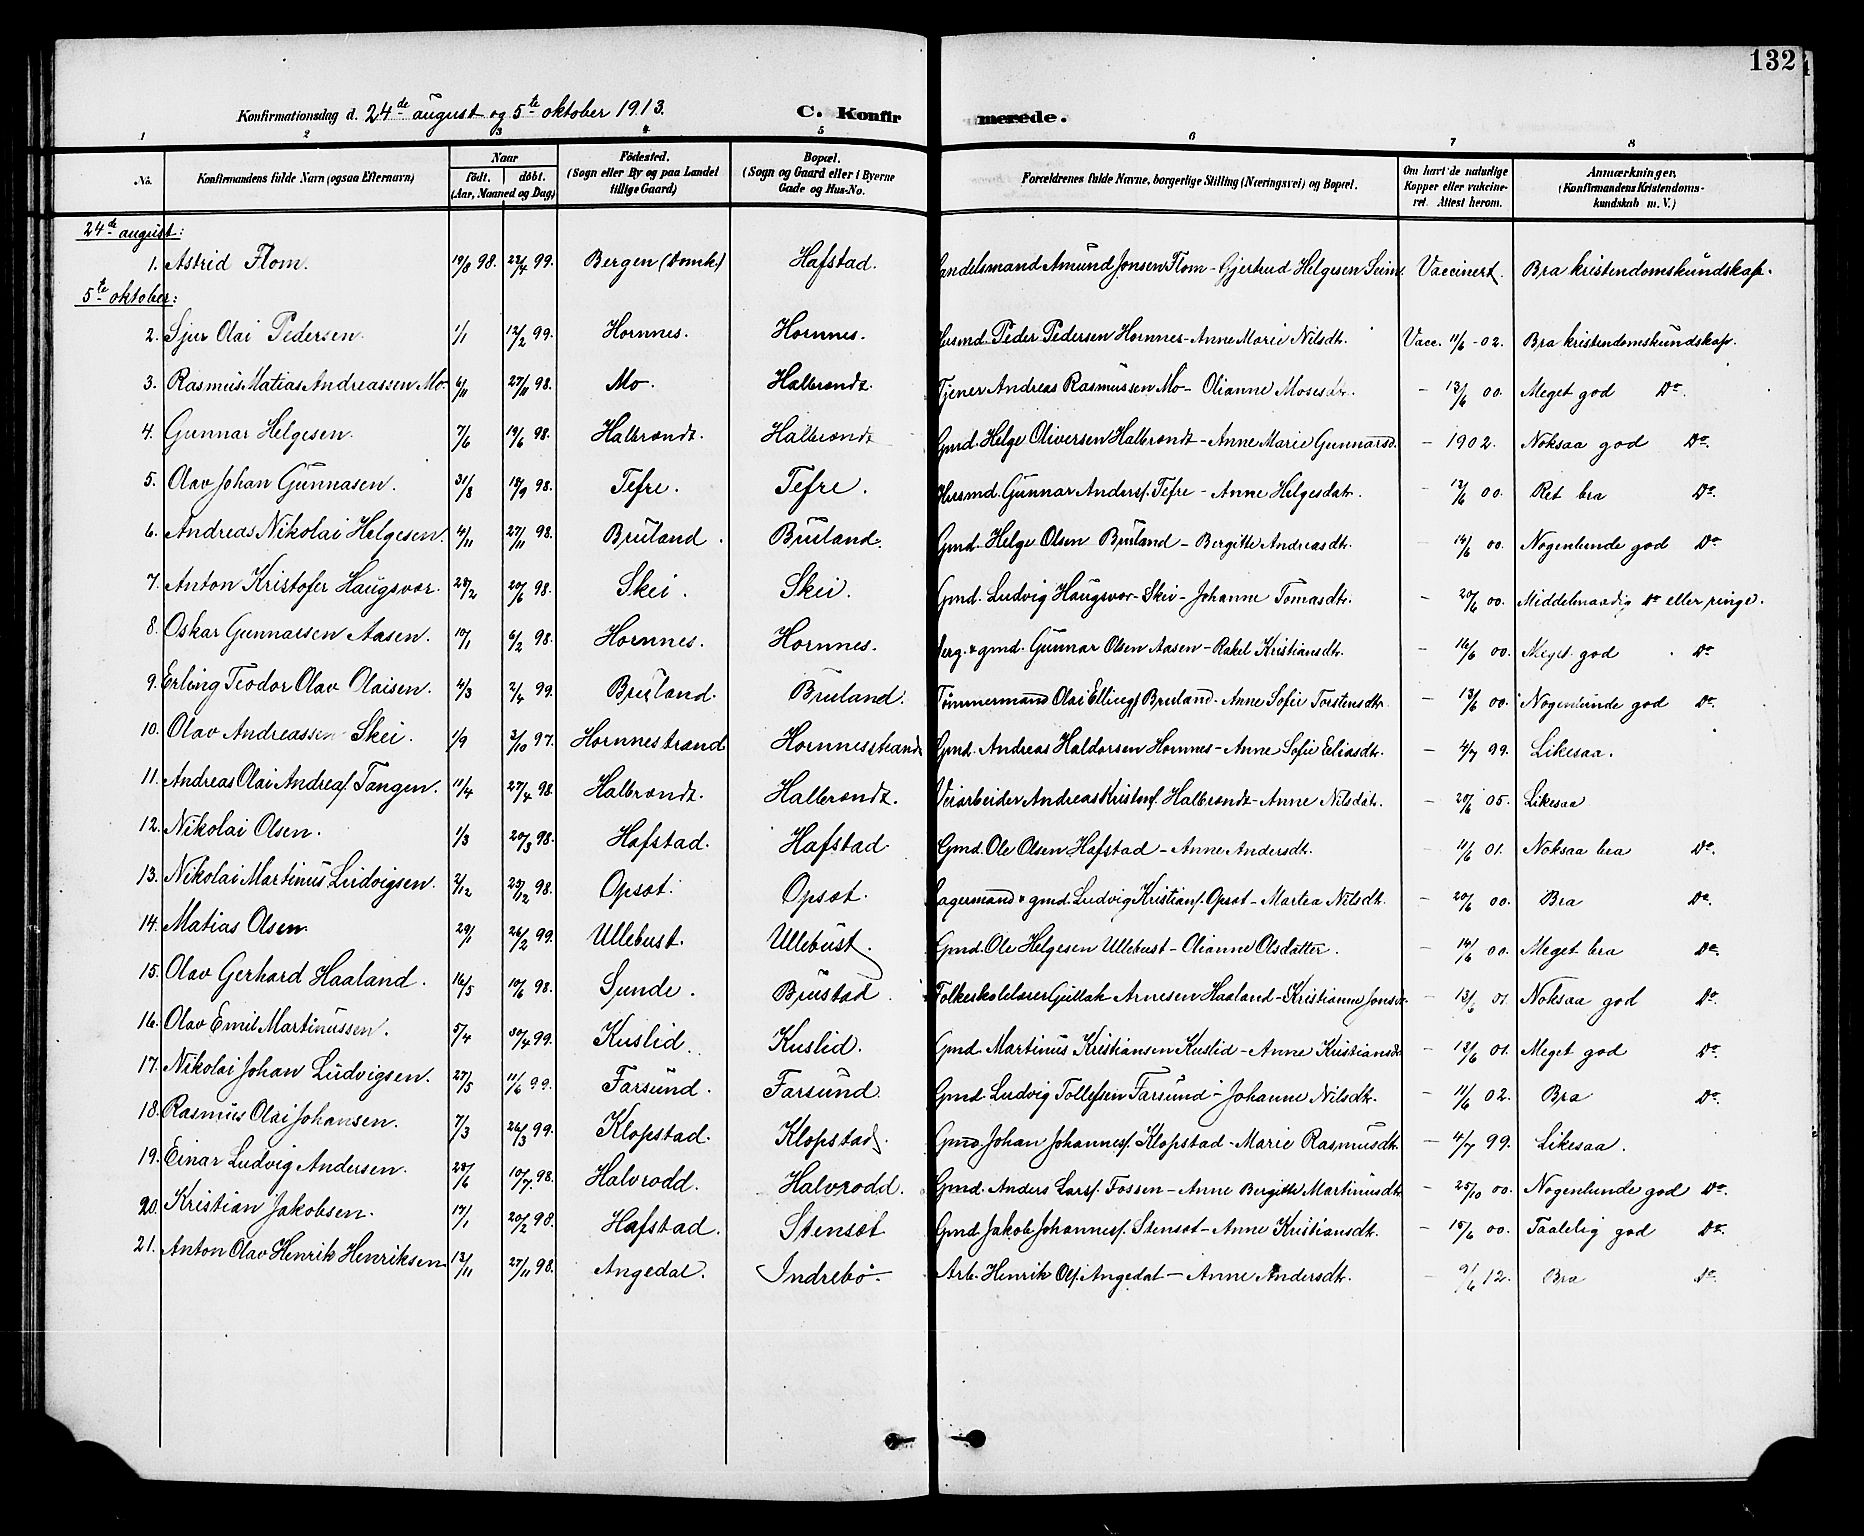 132
Konfirmationsdag d. 24de august og 5te oktober 1913. C. Konfirmerede.
1 2 3 4 5 6 7 8
No. Konfirmandens fulde Navn (ogsaa Efternavn) Naar født. døbt. (Aar, Maaned og Dag) Födested. (Sogn eller By og paa Landet tillige Gaard) Bopæl. (Sogn og Gaard eller i Byerne Gade og Hus-No. Forældrenes fulde Navne, borgerlige Stilling (Næringsvei) og Bopæl. Om havt de naturlige Kopper eller vakcineret. Attest herom. Anmærkninger. (Konfirmandens Kristendomskundskab m. V.)
24de august:
1. Astrid Flom. 19/8 98. 22/4 99. Bergen (Domk.) Hafstad. Handelsmand Amund Jonsen Flom - Gjertrud Helgesen Seim. Vaccinert Bra kristendomskundskap.
5te oktober:
2. Sjur Olai Pedersen. 1/1 12/2 99. Hornnes. Hornnes. Husmd. Peder Pedersen Hornnes - Anne Marie Nilsdtr. Vacc. 11/6 - 02. Bra kristendomskundskap.
3. Rasmus Matias Andreassen Mo. 6/11 27/11 98. Mo. Halbrendt. Tjener Andreas Rasmussen Mo - Olianne Mosesdtr. - 13/6 00. Meget god Do.
4. Gunnar Helgesen. 7/6 19/6 98. Halbrendt. Halbrendt Gmd. Helge Oliversen Halbrendt - Anne Marie Gunnarsd. - 1902. Noksaa god Do.
5. Olav Johan Gunnasen. 31/8 18/9 98. Tefre. Tefre. Husmd. Gunnar Anders. Tefre - Anne Helgesdatr. - 12/6 00. Ret bra Do.
6. Andreas Nikolai Helgesen. 4/11 27/11 98. Bruland. Bruland. Gmd. Helge Olsen Bruland - Bergitte Andreasdtr. - 14/6 00. Nogenlunde god Do
7. Anton Kristofer Haugsvær. 28/2 20/6 98. Skei. Skei. Gmd. Ludvig Haugsvær - Skei - Johanne Tomasdtr. - 20/6 00. Middelmaadig Do eller ringe.
8. Oskar Gunnarsen Aasen. 10/1 6/2 98. Hornnes. Hornnes. gmd. Gunnar Olsen Aasen - Rakel Kristiansdtr. - 16/6 00. Meget god Do
9. Erling Teodor Olav Olaisen. 4/3 2/4 99. Bruland. Bruland. Tømmermand Olai Ellings. Bruland - Anne Sofie Torstensdtr. - 13/6 00. Nogenlunde god Do.
10. Olav Andreassen Skei. 1/9 3/10 97. Hornnestrand Hornnesstrand Gmd. Andreas Haldorsen Hornnes - Anne Sofie Eliasdtr. - 4/7 99. Likesaa.
11. Andreas Olai Andreas. Tangen. 11/4 27/4 98. Halbrendt. Halbrendt. Veiarbeider Andreas Kristens. Halbrendt - Anne Nilsdtr. - 20/6 05. Likesaa
12. Nikolai Olsen. 1/3 20/3 98. Hafstad. Hafstad Gmd. Ole Olsen Hafstad - Anne Andersdtr. - 11/6 01. Noksaa bra Do.
13. Nikolai Martinus Ludvigsen. 2/12 25/12 98. Opset. Opset. Lagermand & gmd. Ludvig Kristians. Opset - Martea Nilsdtr. - 20/6 00. Bra Do.
14. Matias Olsen. 29/1 26/2 99. Ullebust. Ullebust. Gmd. Ole Helgesen Ullebust - Olianne Olsdatter. - 14/6 00. Meget bra Do.
15. Olav Gerhard Haaland. 16/5 10/6 98. Sunde. Brustad. Folkeskolelærer Gullak Arnesen Haaland - Kristianne Jonsdtr. - 13/6 01. Noksaa god Do.
16. Olav Emil Martinussen. 5/4 30/4 99. Kuslid. Kuslid. Gmd. Martinus Kristiansen Kuslid - Anne Kristiansdtr. - 12/6 01. Meget god Do.
17. Nikolai Johan Ludvigsen. 27/5 11/6 99. Farsund. Farsund. Gmd. Ludvig Tollefsen Farsund - Johanne Nilsdtr. - 11/6 02. Bra Do.
18. Rasmus Olai Johansen. 7/3 26/3 99. Klopstad. Klopstad. Gmd. Johan Johannes. Klopstad - Marie Rasmusdtr. - 4/7 99. Likesaa.
19. Einar Ludvig Andersen. 28/6 10/7 98. Halvrodd. Halvrodd. Gmd. Anders Lars. Fossen - Anne Bergitte Martinusdtr. - 25/10 00. Nogenlunde god Do.
20. Kristian Jakobsen. 17/1 20/2 98. Hafstad. Stenset Gmd. Jakob Johannes. Stenset - Anne Kristiansdtr. - 15/6 00. Taalelig god Do.
21. Anton Olav Henrik Henriksen 13/11 27/11 98. Angedal. Indrebø. Arb. Henrik Ols. Angedal - Anne Andersdtr. - 9/6 12. Bra Do